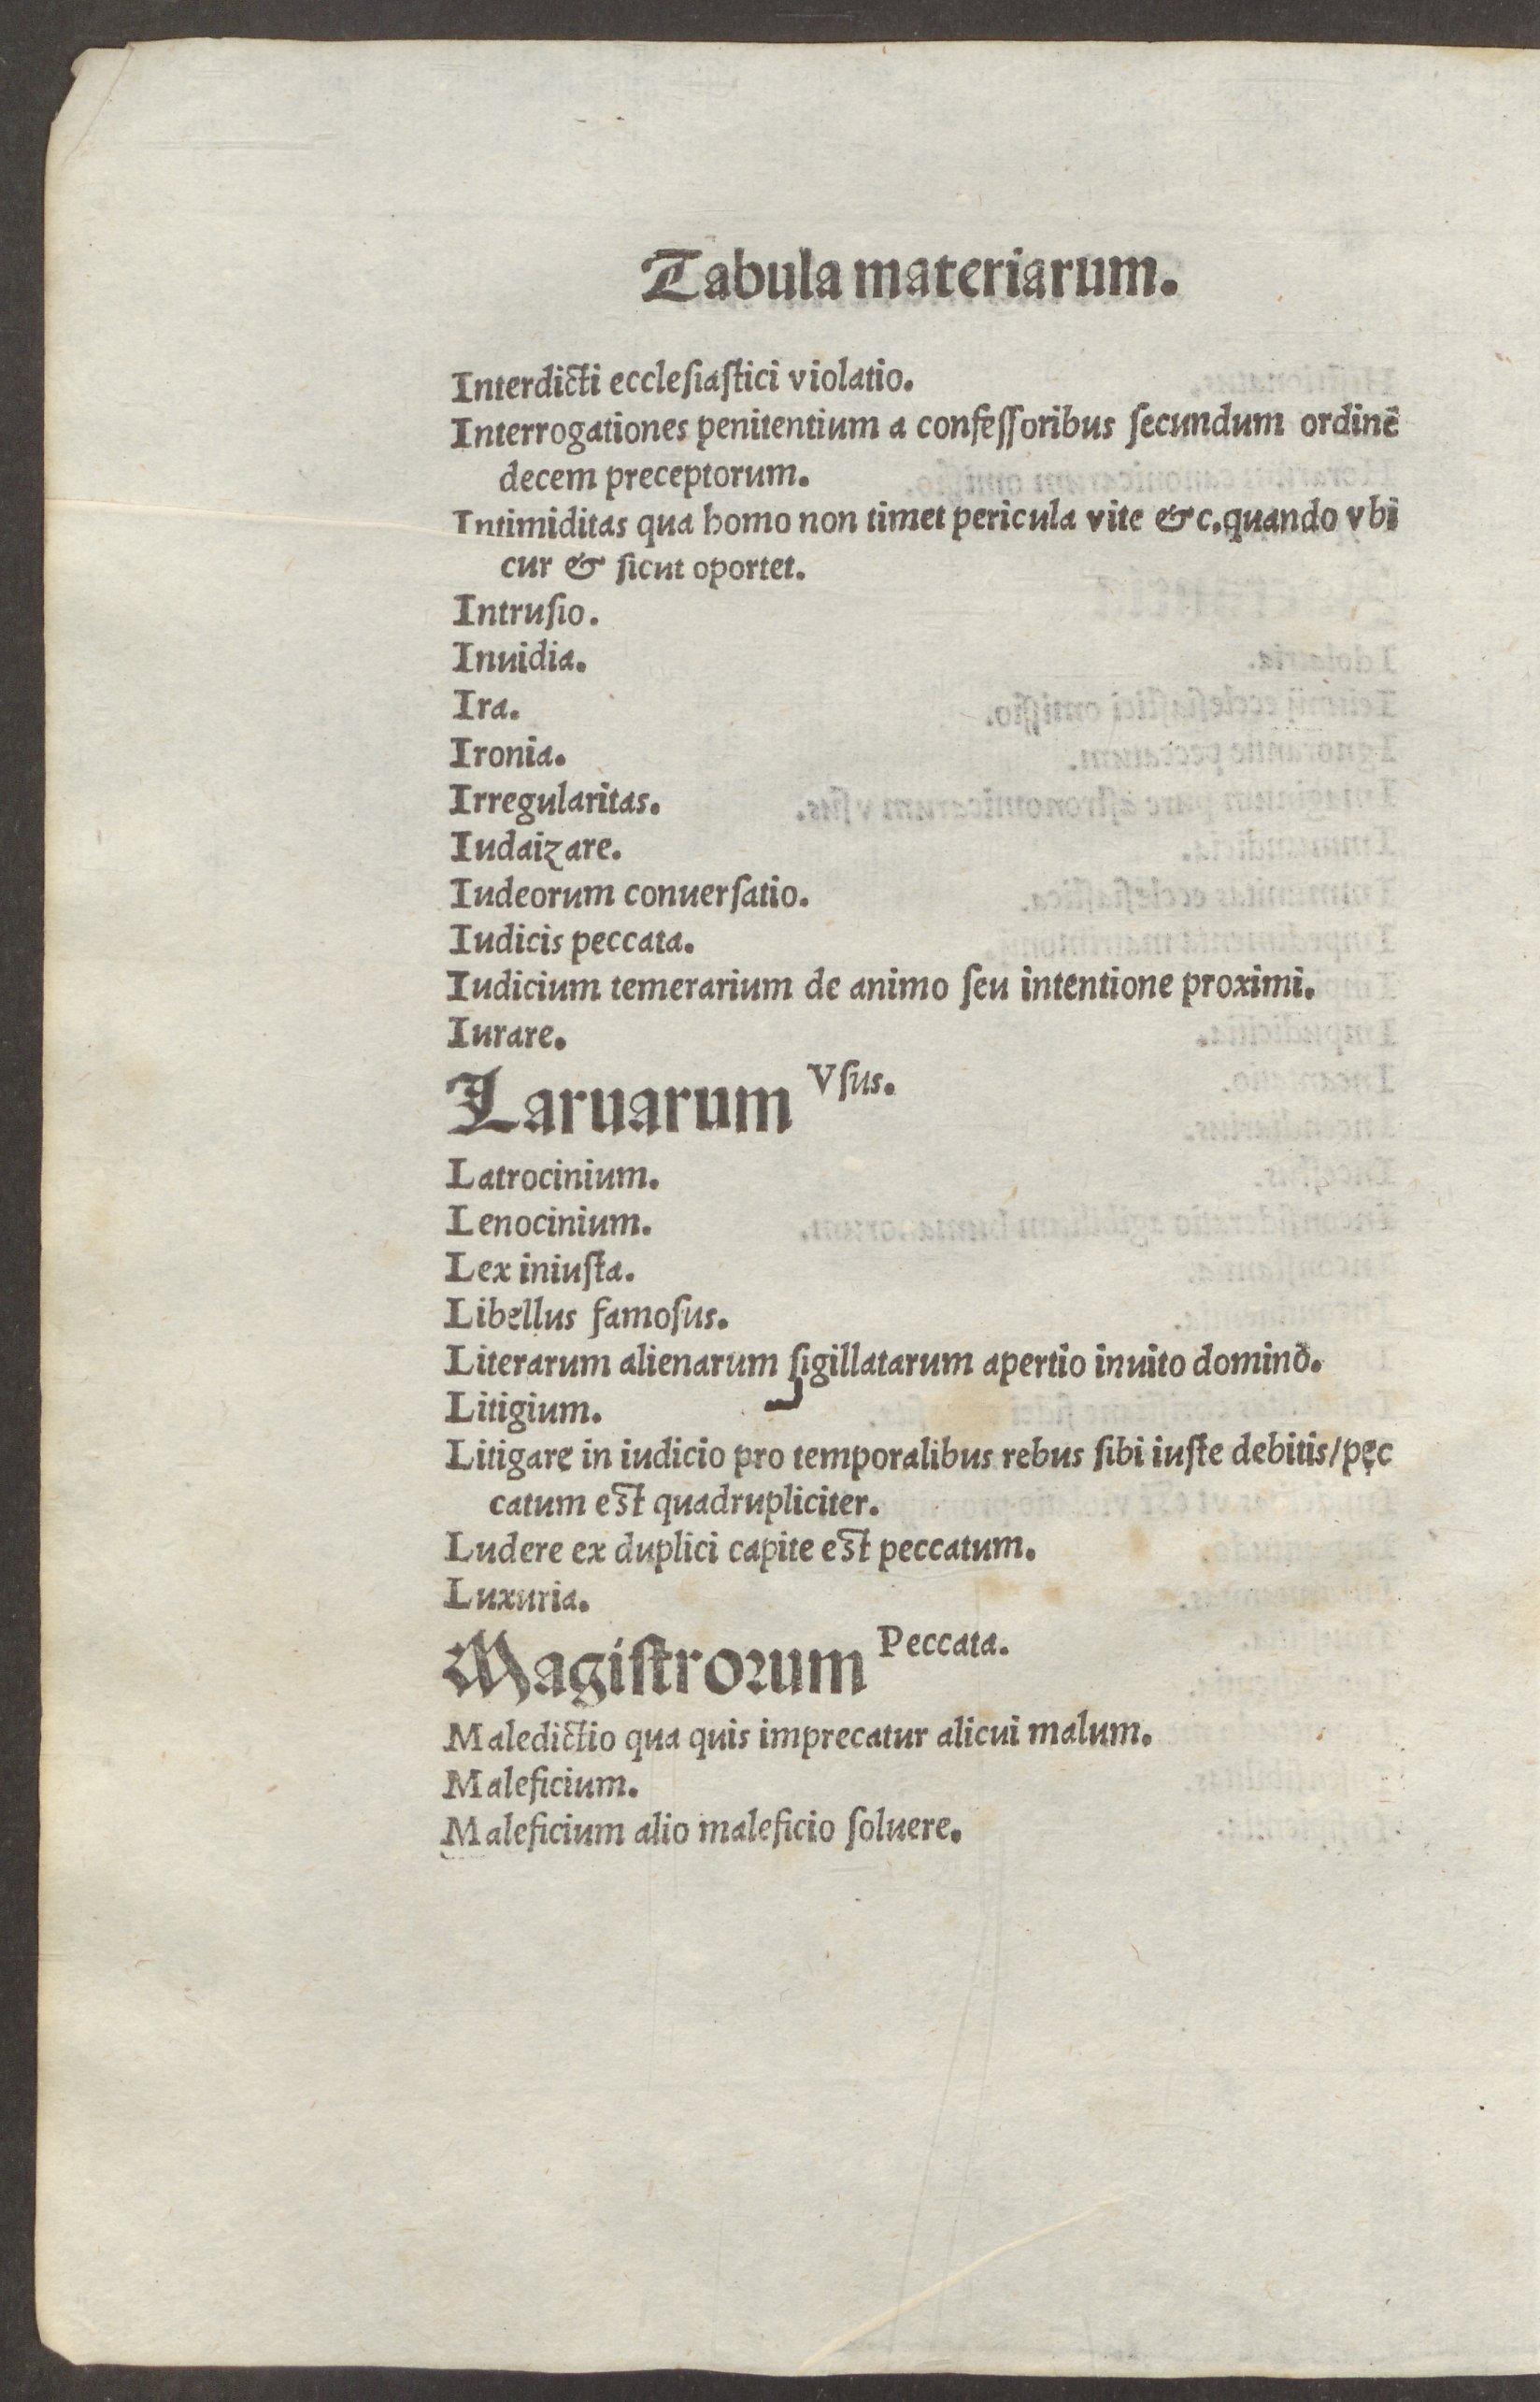 Tabula materiarum.
Interdicti ecclesiastici violatio.
Interrogationes penitentium a confessoribus secundum ordinē
decem preceptorum.
Intimiditas qua homo non timet pericula vite &c, quando vbi
cur & sicut oportet.
Intrusio.
Inuidia.
Ira.
Ironia.
Irregularitas.
Iudaizare.
Iudeorum conuersatio.
Iudicis peccata.
Iudicium temerarium de animo seu intentione proximi.
Iurare.
Laruarum Vsus.
Latrocinium.
Lenocinium.
Lex iniusta.
Libellus famosus.
Literarum alienarum sigillatarum apertio inuito domino.
Litigium.
Litigare in iudicio pro temporalibus rebus sibi iuste debitis/pęc
catum est quadrupliciter.
Ludere ex duplici capite est peccatum.
Luxuria.
Magistrorum Peccata.
Maledictio qua quis imprecatur alicui malum.
Maleficium.
Maleficium alio maleficio soluere.